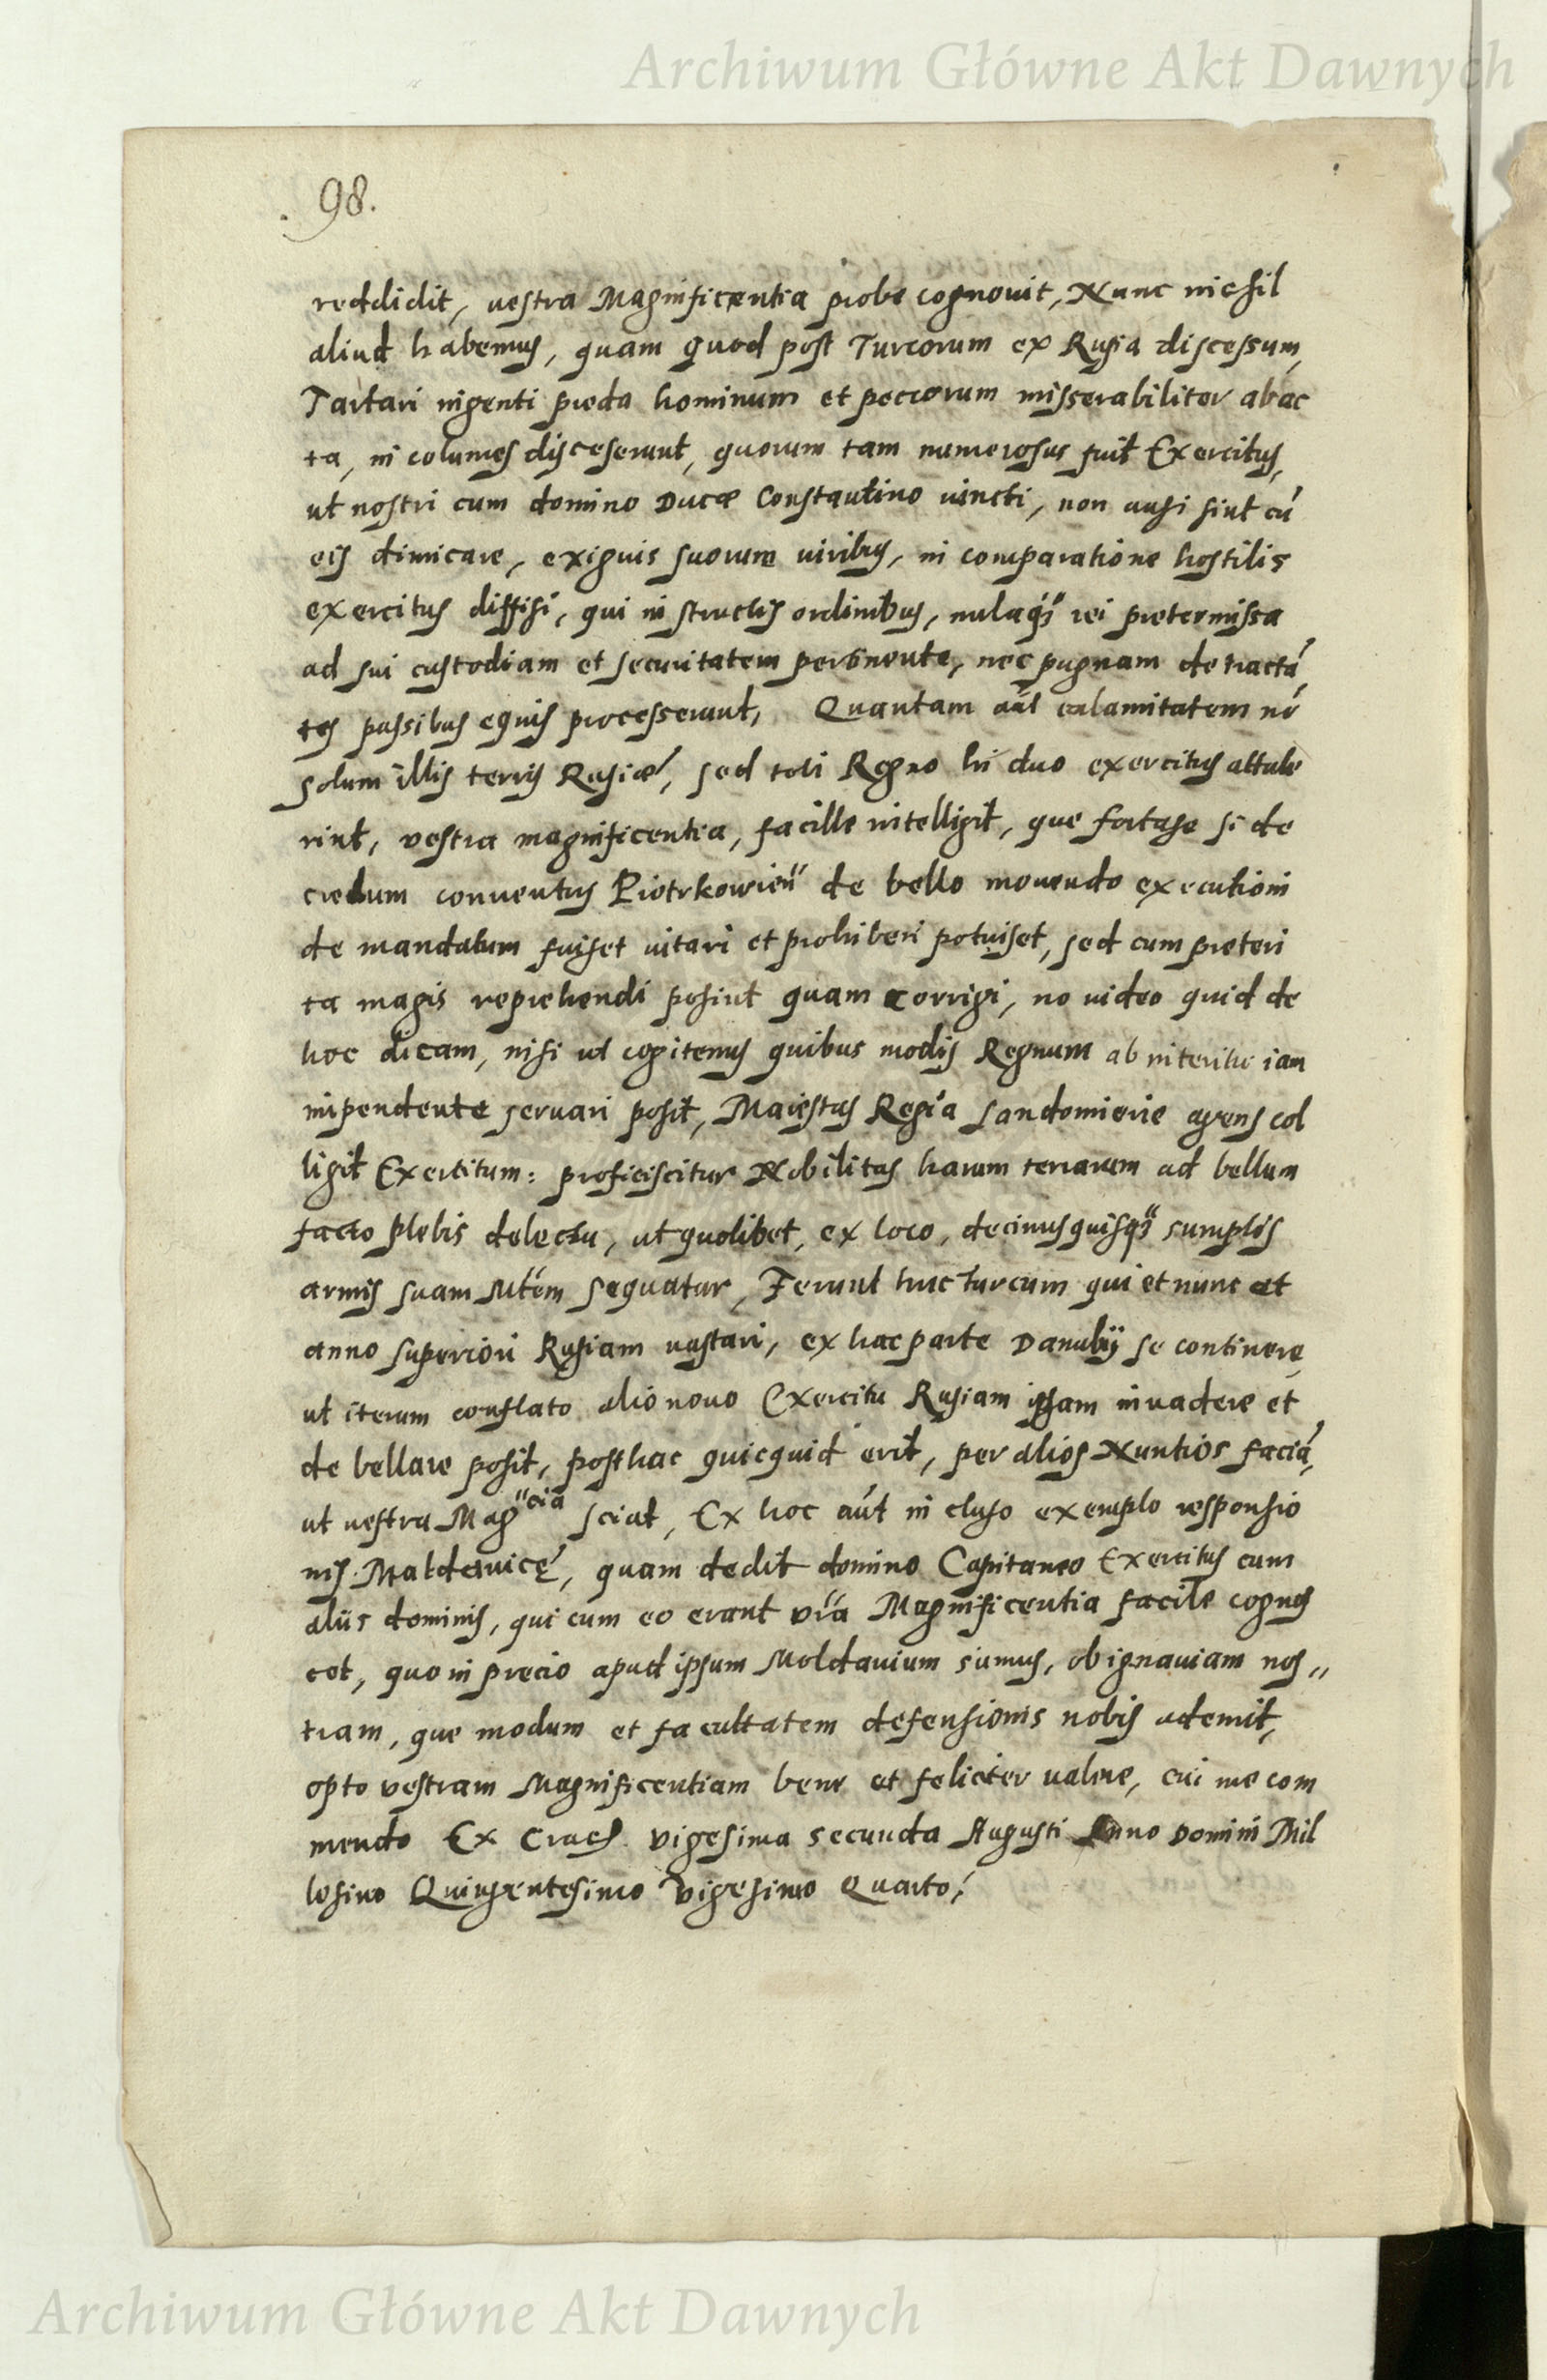 Archiwum Główne Akt Dawnych
98.
reddidit, vestra Magnificentia probe cognovit, Nunc nichil
aliud habemus, quam quod post Turcorum ex Rusia discessum,
Tartari ingenti preda hominum et pecorum misserabiliter abac
ta, in columes disceserunt, quorum tam numerosus fuit Exercitus,
ut nostri cum domino Duce Constantino uincti, non ausi sint cū
eis dimicare, exiguis suorum viribus, in comparatione hostilis
exercitus diffisi, qui in structis ordinibus, nulaq; rei pretermissa
ad sui custodiam et securitatem pertinente, nec pugnam detractā
tes passibus equis processerunt, Quantam aūt calamitatem nō
solum illis terris Rusiæ, sed toti Regno hi duo exercitus attule
rint, vestra magnificentia, facille intelligit, que fortase si de
cretum conventus Piotrkowień de bello movendo executioni
de mandatum fuiset vitari et prohiberi potuiset, sed cum preteri
ta magis reprehendi posint quam corrigi, no video quid de
hoc dicam, nisi ut cogitemus quibus modis Regnum ab interitu iam
inpendente servari posit, Maiestas Regia Sandomirie agens col
ligit Exercitum: proficiscitur Nobilitas harum terrarum ad bellum
facto plebis delectu, ut quolibet, ex loco, decimus quisq; sumptis
armis suam Mtēm sequatur, Ferunt hunc Turcum qui et nunc et
anno superiori Rusiam vastari, ex hac parte Danubij se continere,
ut iterum conflato alio novo Exercitu Rusiam ipsam invadere et
de bellare posit, posthac quicquid erit, per alios Nuntios faciā,
ut vestra Mag cia sciat, Ex hoc aūt in cluso exemplo responsio
nis Maldavicę, quam dedit domino Capitaneo Exercitus cum
aliis dominis, qui cum eo erant vrā Magnificentia facile cognos
cet, quo in precio apud ipsum Moldavium sumus, ob ignaviam nos„
tram, que modum et facultatem defensionis nobis ademit,
opto vestram Magnificentiam bene et feliciter valere, cui me com
mendo Ex Crac. vigesima secunda Augusti Anno Domini Mil
lesimo Quingentesimo Vigesimo Quarto.
Archiwum Główne Akt Dawnych